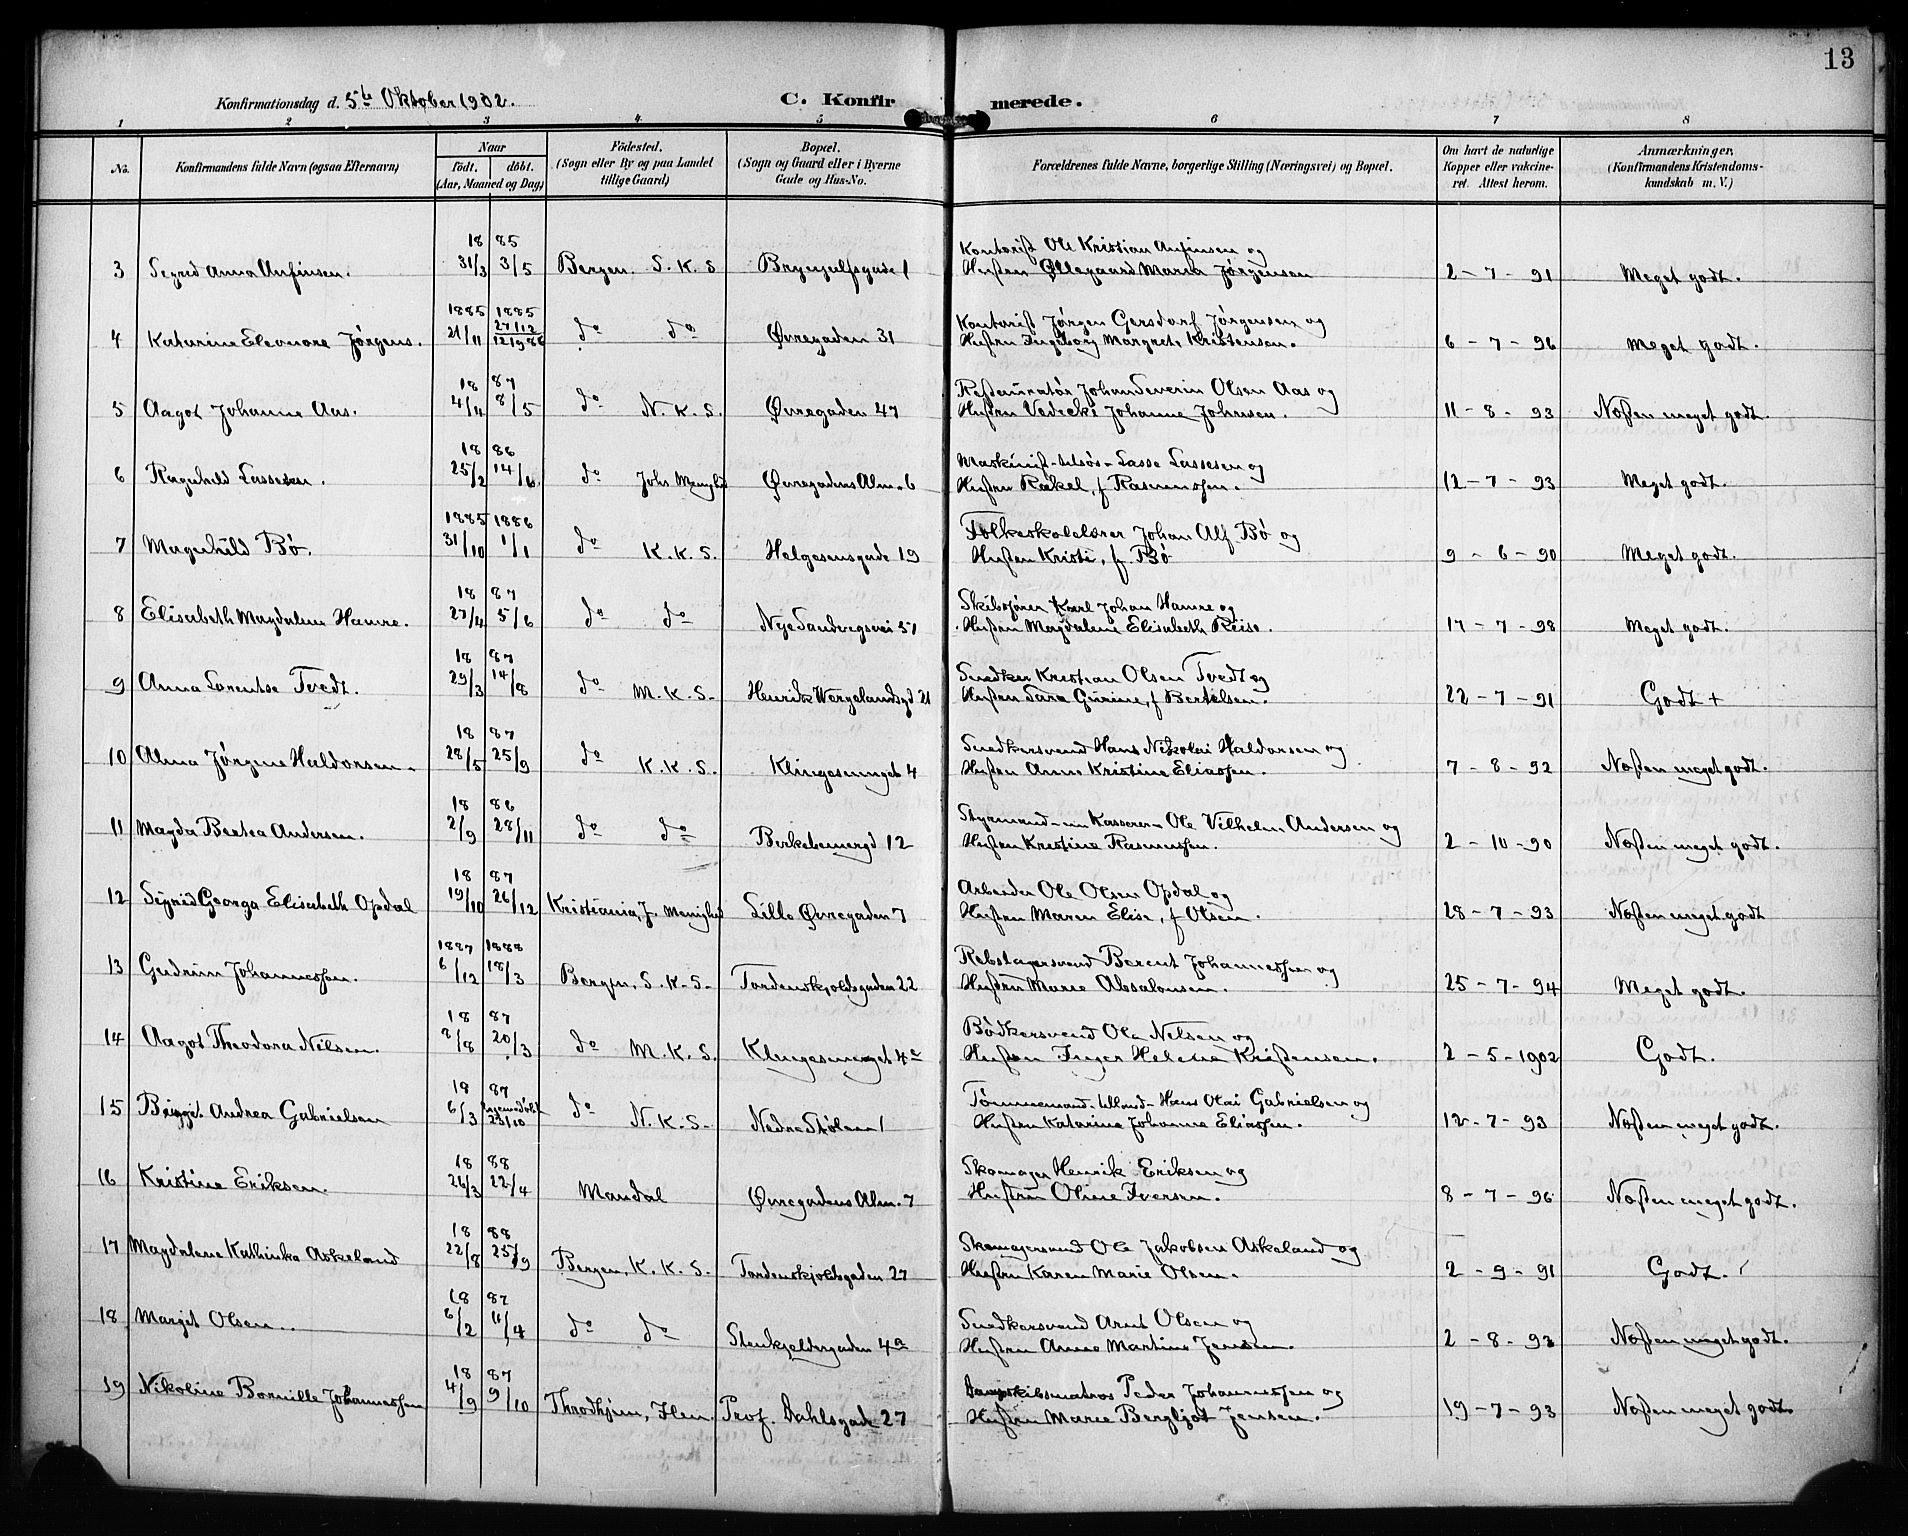 13
Konfirmationsdag d. 5te Oktober 1902.
C. Konfirmerede.
1 2 3 4 5 6 7 8
No.
Konfirmandens fulde Navn (ogsaa Efternavn)
Naar
Födt. döbt.
(Aar, Maaned og Dag)
Födested.
(Sogn eller By og paa Landet
tillige Gaard)
Bopæl.
(Sogn og Gaard eller i Byerne
Gade og Hus-No.
Forældrenes fulde Navne, borgerlige Stilling (Næringsvei) og Bopæl.
Om havt de naturlige
Kopper eller vakcine-
ret. Attest herom.
Anmærkninger,
(Konfirmandens Kristendoms-
kundskab m. V.)
18 85 Kontorist Ole Kristian Anfinsen og
3 Sigrid Anna Anfinsen. 31/3 3/5 Bergen. S. K. S Brynjulfsgade 1 Hustru Øllegaard Maria Jørgensen 2-7-91 Meget godt.
1885 1885 Kontorist Jørgen Gersdorf Jørgensen og
4 Katarine Eleonore Jørgens. 21/11 27/12 12/9 86 do do Øvregaden 31 Hustru Ingeborg Margrete Kristensen. 6-7-96 Meget godt.
18 87 Restauratør Johan Severin Olsen Aas og
5 Aagot Johanne Aas. 4/4 8/5 do N. K. S. Øvregaden 47 Hustru Johanne Johnsen. 11-8-93 Næsten meget godt.
18 86 Maskinist Lasse Lassesen og
6 Ragnhild Lassesen. 25/2 14/6. do Johs Menighed Øvregadens Alm. 6 Hustru Rakel, f Rasmussen. 12-7-93 Meget godt.
1885 1886 Folkeskolelærer Johan Alf Bø og
7 Magnhild Bø. 31/10 1/1 do K. K. S. Helgesensgade 19 Hustru Kristi, f. Bø 9-6-90 Meget godt.
18 87 Skibsfører Karl Johan Hamre og
8 Elisabeth Magdalene Hamre. 27/4 5/6 do do Nye Sandvigsvei 51 Hustru Magdalene Elisabeth Reise. 17-7-98 Meget godt.
18 87 Snedker Kristian Olsen Tvedt og
9 Anna Lorentse Tvedt. 29/3 14/8 do M. K. S. Henrik Wergelandsgd 21 Hustru Sara Gurine, f Bertelsen. 22-7-91 Godt +
18 87 Snedkersvend Hans Nikolai Haldorsen og
10 Alma Jørgine Haldorsen. 28/5 25/9 do K. K. S. Klingesmuget 4 Hustru Anna Kristine Eliassen. 7-8-92 Næsten meget godt.
18 86 Styrmand Ole Vilhelm Andersen og
11 Magda Bertea Andersen. 2/9 28/11 do do Birkebeinergd 12 Hustru Kristine Rasmussen. 2-10-90 Næsten meget godt.
18 87 Arbeider Ole Olsen Opdal og
12 Sigrid Georga Elisabeth Opdal 19/10 26/12 Kristiania, J. Menighed Lille Øvregaden 7 Hustru Maren Elise, f Olsen. 28-7-93 Næsten meget godt
1887 1888 Rebslagersvend Berent Johannessen og
13 Gudrun Johannessen. 6/12 18/3 Bergen, S. K. S. Tordenskjoldsgaden 22 Hustru Marie Absalonsen. 25-7-94 Meget godt.
18 87 Bødkersvend Ole Nilsen og
14 Aagot Theodora Nilsen. 8/8 20/3 do M. K. S. Klingesmuget 4a Hustru Inger Helene Kristensen. 2-5-1902 Godt.
18 87 Tømmermand Hans Olai Gabrielsen og
15 Birgit Andrea Gabrielsen 6/3 hjemmedøbt 23/10 do N. K. S. Nedre Stølen 1 Hustru Katarina Johanna Eliassen. 12-7-93 Næsten meget godt.
18 88 Skomager Henrik Eriksen og
16 Kristine Eriksen. 26/3 22/4 Mandal Øvregadens Alm. 7 Hustru Oline Iversen. 8-7-96 Næsten meget godt.
18 88 Skomagersvend Ole Jakobsen Askeland og
17 Magdalene Kathinka Askeland 22/8 25/9 Bergen, K. K. S. Tordenskjoldsgaden 27 Hustru Karen Marie Olsen. 2-9-91 Godt.
18 87 Snedkersvend Arnt Olsen og
18 Margit Olsen. 6/2 11/4 do do Stenkjeldergaden 4a Hustru Anne Martine Jensen. 2-8-93 Næsten meget godt.
18 87 Dampskibsmatros Peder Johannessen og
19 Nikoline Bornille Johannessen 4/9 9/10 Throdhjem, Ilen. Prof. Dahlsgade 27 Hustru Marie Bergljot Jensen. 19-7-93 Næsten meget godt.